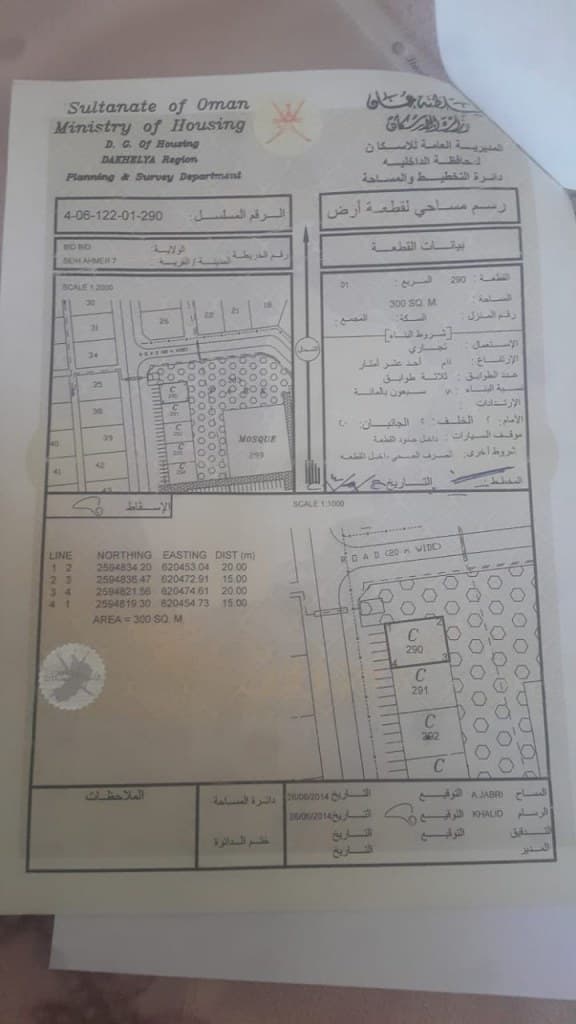 Sultanate of Oman
Ministry of Housing
D. G. Of Housing
DAKHELYA Region
Planning & Survey Department
سلطنة عمان
وزارة الإسكان
المديرية العامة للاسكان
لمحافظة الداخليه
دائرة التخطيط والمساحة
4-06-122-01-290
الرقم المسلسل :
رسم مساحي لقطعة أرض
BID BID
الولاية :
SEIH AHMER 7
المدينة / القرية :
رقم الخريطة :
بيانات القطعة
القطعة : 290
المربع : 01
المساحة : 300 SQ. M.
رقم المنزل :
السكة :
المجمع :
[شروط البناء]
الإستعمال : تجاري
الإرتفاع : ١١م أحد عشر أمتار
عدد الطوابق : ثلاثة طوابق
نسبة البناء : سبعون بالمائة
الإرتدادات :
الأمام: ٢ الخلف: ٢ الجانبان:
موقف السيارات : داخل حدود القطعة
شروط أخرى: الصرف الصحي داخل القطعه
المخطط :
التاريخ
SCALE 1:2000
30
31
34
35
38
39
40
41
42
43
25
22
21
18
ROAD (20 m WIDE)
PARK
C
290
C
291
C
292
C
C
MOSQUE
299
الشمال
الإسقاط
SCALE 1:1000
LINE NORTHING EASTING DIST (m)
1 2 2594834.20 620453.04 20.00
2 3 2594836.47 620472.91 15.00
3 4 2594821.56 620474.61 20.00
4 1 2594819.30 620454.73 15.00
AREA = 300 SQ. M.
ROAD (20 m WIDE)
1
2
3
4
C
290
C
291
C
292
C
الملاحظات
دائرة المساحة
ختم الدائرة
المساح A.JABRI التوقيع التاريخ 26/06/2014
الرسام KHALID التوقيع التاريخ 26/06/2014
التدقيق التوقيع التاريخ
المدير التاريخ